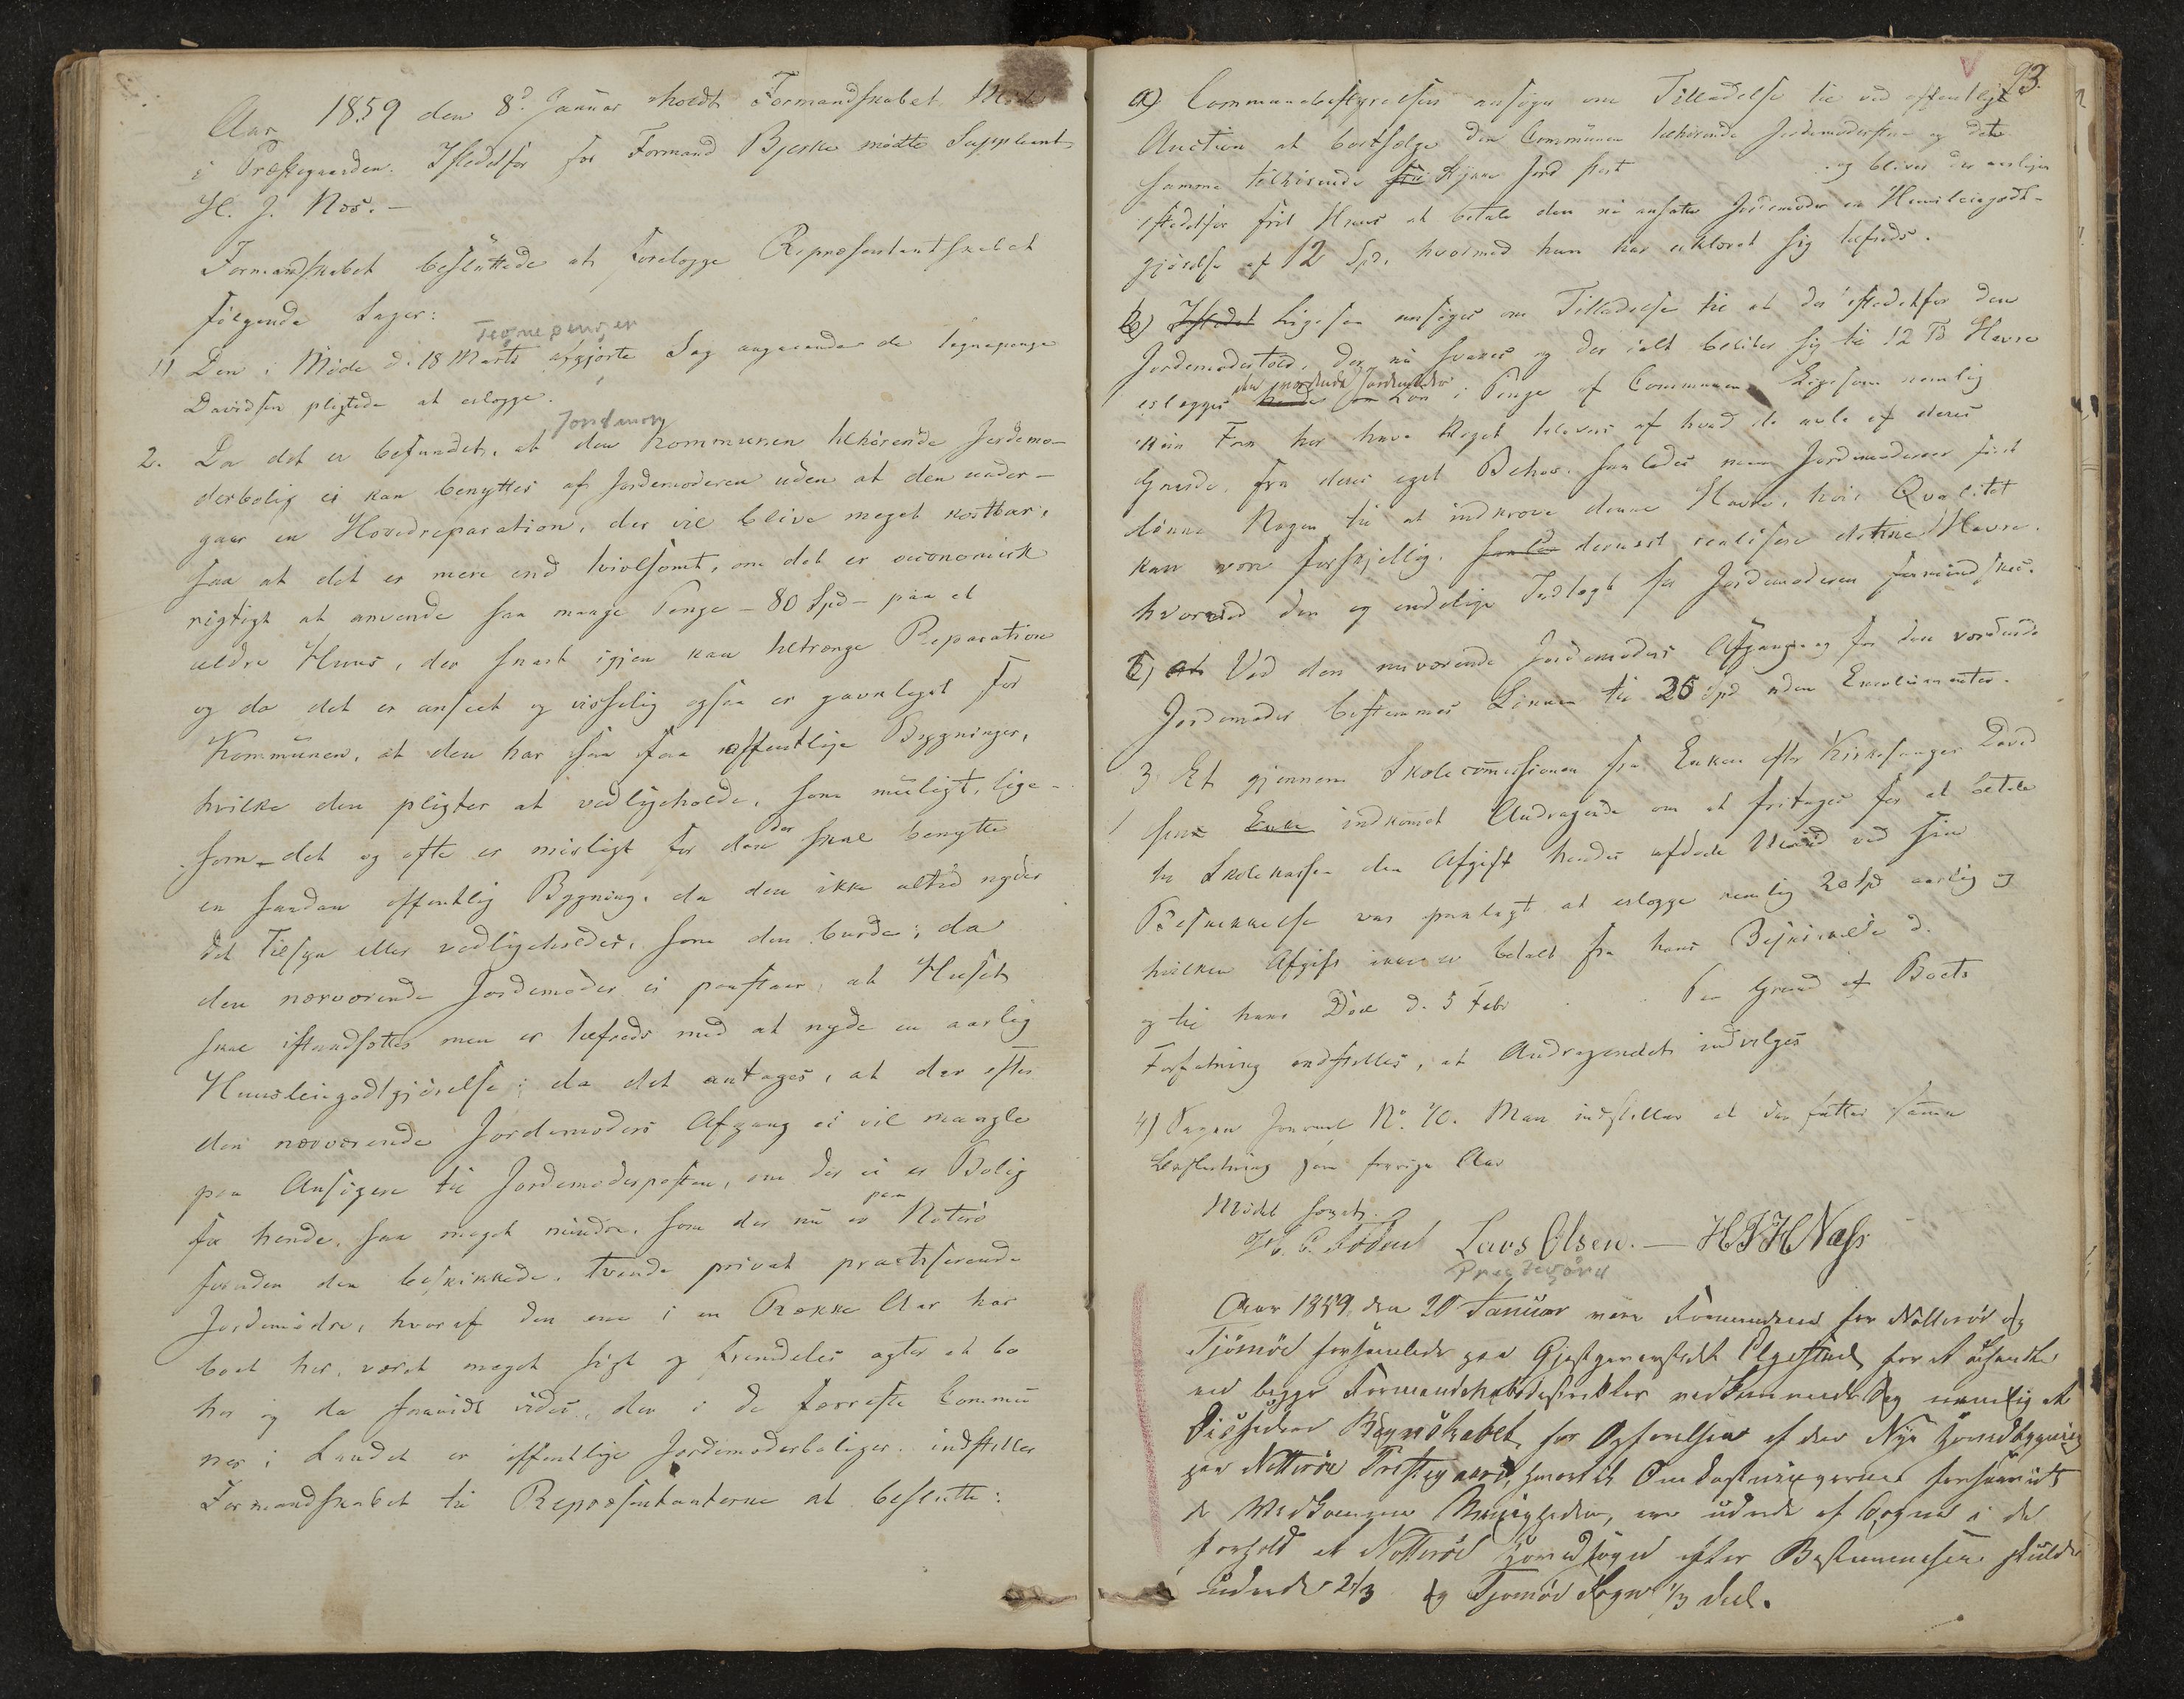 Aar 1859 den 8de Januar holdt Formandskabet Møde
i Præstegaarden. Istedetfor for Formand Bjerke mødte Suppleant
H. J. Næs. –
Formandskabet besluttede at forelægge Repræsentantskabet
følgende Sager:
Tegnepenger
1) Den i Møde d. 18 Marts afgjorte Sag angaaende de Tegnepenge
Davidsen pligtede at erlægge.
Jordmor
2. Da det er befundet, at den Kommunen tilhørende Jordemo-
derbolig ei kan benyttes af Jordemoderen uden at den under-
gaar en Hovedreparation, der vil blive meget kostbar,
saa at det er mere end tvivlsomt, om det er oeconomisk
rigtigt at anvende saa mange Penge – 80 Spd – paa et
ældre Huus, der snart igjen kan tiltrænge Reparation
og da det er anseet og visselig ogsaa er gavnligst for
Kommunen, at den har saa faa offentlige Bygninger,
hvilke den pligter at vedligeholde, som muligt, lige-
som det og ofte er misligt for den der skal benytte
en saadan offentlig Bygning, da den ikke altid nyder
det Tilsyn eller vedligeholdes, som den burde; da
den nærværende Jordemoder ei paastaar, at Huset
skal istandsættes men er tilfreds med at nyde en aarlig
Huusleiegodtgjørelse; da det antages, at der efter
den nærværende Jordemoders Afgang ei vil mangle
paa Ansøgere til Jordemoderposten, om der ei er Bolig
for hende, saa meget mindre, som der nu er paa Nøterø
foruden den beskikkede, tvende privat practiserende
Jordemødre, hvoraf den ene i en Række Aar har
boet her, været meget søgt og fremdeles agter at bo
her og da saavidt vides, der i de færreste Commu
ner i Landet er offentlige Jordemoderboliger, indstiller
Formandskabet til Repræsentanterne at beslutte:
93.
a) Communebestyrelsen ansøger om Tilladelse til ved offentlig
Auction at bortsælge den Communen tilhørende Jordemoder og det
samme tilhørende Stykke Jord samt og bliver der aarligen
istedetfor frit Huus at betale den nu ansatte Jordemoder en Huusleiegodt-
gjørelse af 12 Spd, hvormed hun har erklæret sig tilfreds.
b) Istedet Ligesaa ansøges om Tilladelse til at der istedetfor den
Jordemodertold, der nu svares og der ialt beløber sig til 12 Td Havre
erlægges den nærværende Jordemoder Løn i Penge af Communen. Ligesom nemlig
kun Faa her have Noget tilovers af hvad de avle af deres
Gaarde, fra deres eget Behov, saaledes maa Jordemoderen først
lønne Nogen til at indkræve denne Havre, hvis Qvalitet
kan være forskjellig, dernæst realisere denne Havre.
hvorved den og endelige Indtægt for Jordemoderen formindskes.
c) Ved den nuværende Jordemoders Afgang og for den vordende
Jordemoder bestemmes Lønnen til 25 Spd uden Emolumenter.
3. Et gjennem Skolecommissionen fra Enken efter Kirkesanger David
sen Enke indkommet Andragende om at fritages for at betale
til Skolekassen den Afgift hendes afdøde Mand ved sin
Beskikkelse var paalagt at erlægge nemlig 20 Spd aarlig og
hvilken Afgift ikke er betalt fra hans Beskikkelse d.
og til hans Død d. 5 Febr Paa Grund af Boets
Forfatning indstilles, at Andragendet indvilges
4) Sagen Journal No. 70. Man indstiller at der fattes samme
Beslutning som forrige Aar
Mødet hævet.
Lars Olsen. – H J H Næss
Prestegård
Aar 1859 den 20 Januar vare Formændene for Nøtterøe og
Tjømøe forsamlede paa Gjestgiverstedet Elgestad for at afhandle
en begge Formandskabsdistrikter vedkommende Sag nemlig at
Regnskabet for Opførelsen af den Nye Hovedbygning
paa Nøtterøe Præstegaard, hvortil Omkostningerne forsaavidt
de Vedkomme Menigheden, ere udrede af Sognet i det
forhold at Nøtterøe Hovedsogn efter Bestemmelsen skulde
udrede 2/3 og Tjømøe Sogn 1/3 deel.